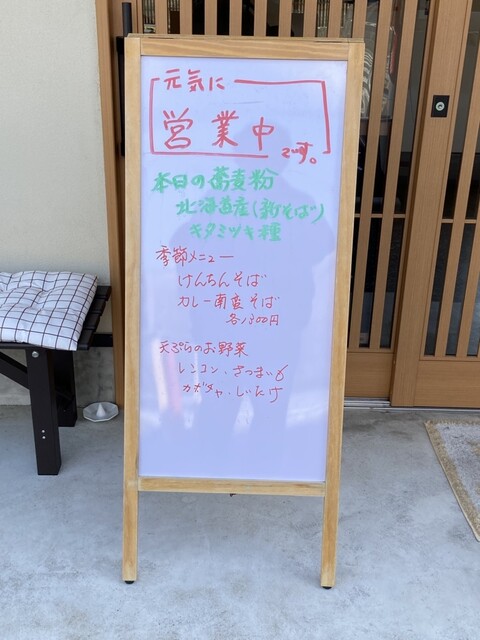 元気に
営業中
です。
本日の蕎麦粉
北海道産(新そば)
キタミツキ種
季節メニュー
けんちんそば
カレー南蛮そば
各1300円
天ぷらのお野菜
レンコン、さつまいも
カボチャ、しいたけ